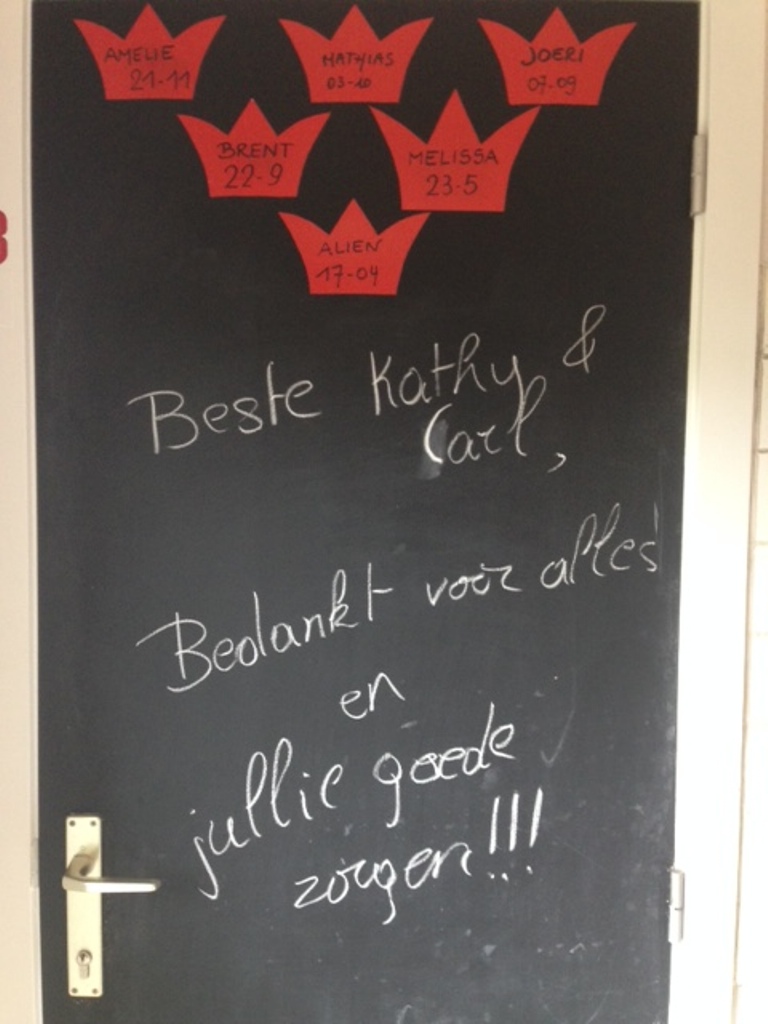 AMELIE
21-11
MATHIAS
03-10
JOERI
07-09
BRENT
22-9
MELISSA
23-5
ALIEN
17-04
Beste Kathy &
Carl,
Bedankt voor alles
en
jullie goede
zorgen!!!